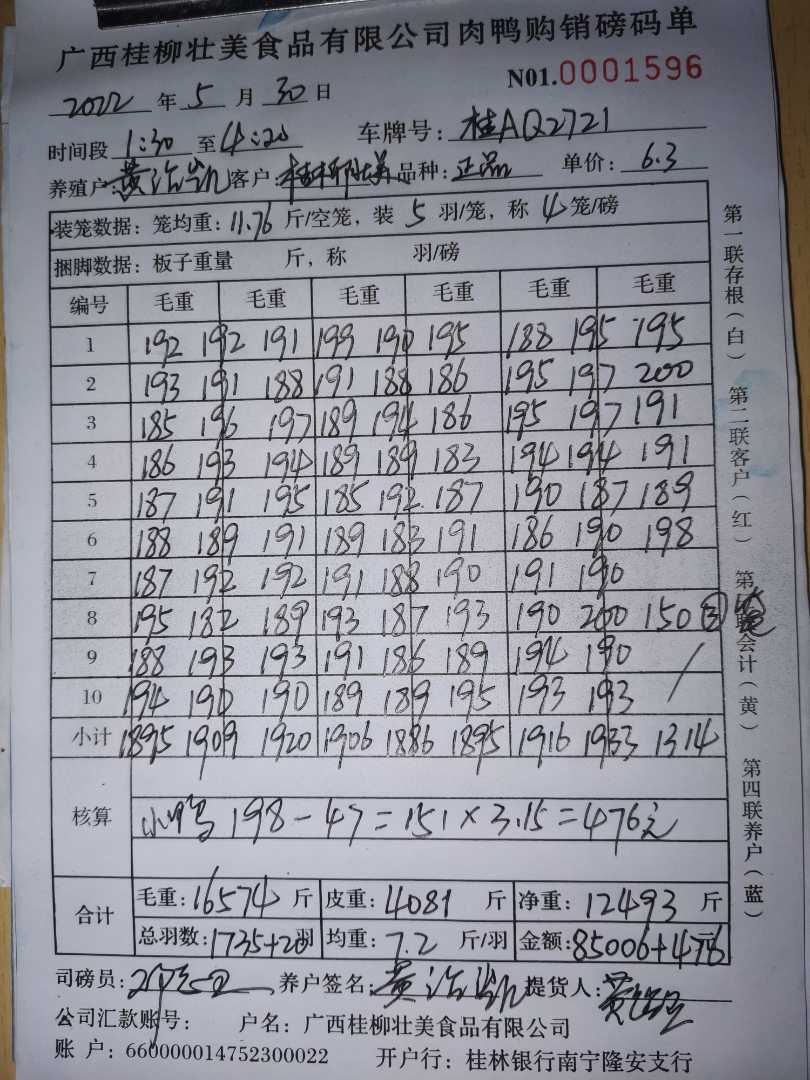 广西桂柳壮美食品有限公司肉鸭购销磅码单
N01.0001596
2022 年 5 月 30 日
时间段 1:30 至 4:20 车牌号: 桂AQ2721
养殖户: 黄治凯 客户: 桂柳壮美 品种: 正品 单价: 6.3
装笼数据: 笼均重: 11.76 斤/空笼, 装 5 羽/笼, 称 4 笼/磅
捆脚数据: 板子重量 斤, 称 羽/磅
编号 毛重 毛重 毛重 毛重 毛重 毛重
1 192 192 191 199 190 195 188 195 195
2 193 191 188 191 188 186 195 197 200
3 185 196 197 189 194 186 195 197 191
4 186 193 194 189 189 183 194 194 191
5 187 191 195 185 192 187 190 187 189
6 188 189 191 189 183 191 186 190 198
7 187 192 192 191 188 190 191 190
8 195 182 189 193 187 193 190 200 150 ③笼
9 188 193 193 191 186 189 194 190 /
10 194 190 190 189 189 195 193 193
小计 1895 1909 1920 1906 1886 1895 1916 1933 1314
核算 小鸭 198-47=151×3.15=476元
合计 毛重: 16574 斤 皮重: 4081 斤 净重: 12493 斤
总羽数: 1735+28羽 均重: 7.2 斤/羽 金额: 85006+476
司磅员: 养户签名: 黄治凯 提货人:
公司汇款账号: 户名: 广西桂柳壮美食品有限公司
账 户: 660000014752300022 开户行: 桂林银行南宁隆安支行
第一联存根(白) 第二联客户(红) 第三联会计(黄) 第四联养户(蓝)